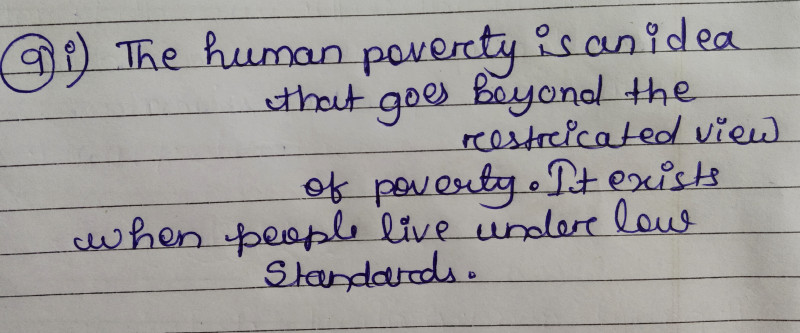 9) i) The human poverty is an idea
that goes Beyond the
restricated view
of poverty. It exists
when people live under low
Standards.